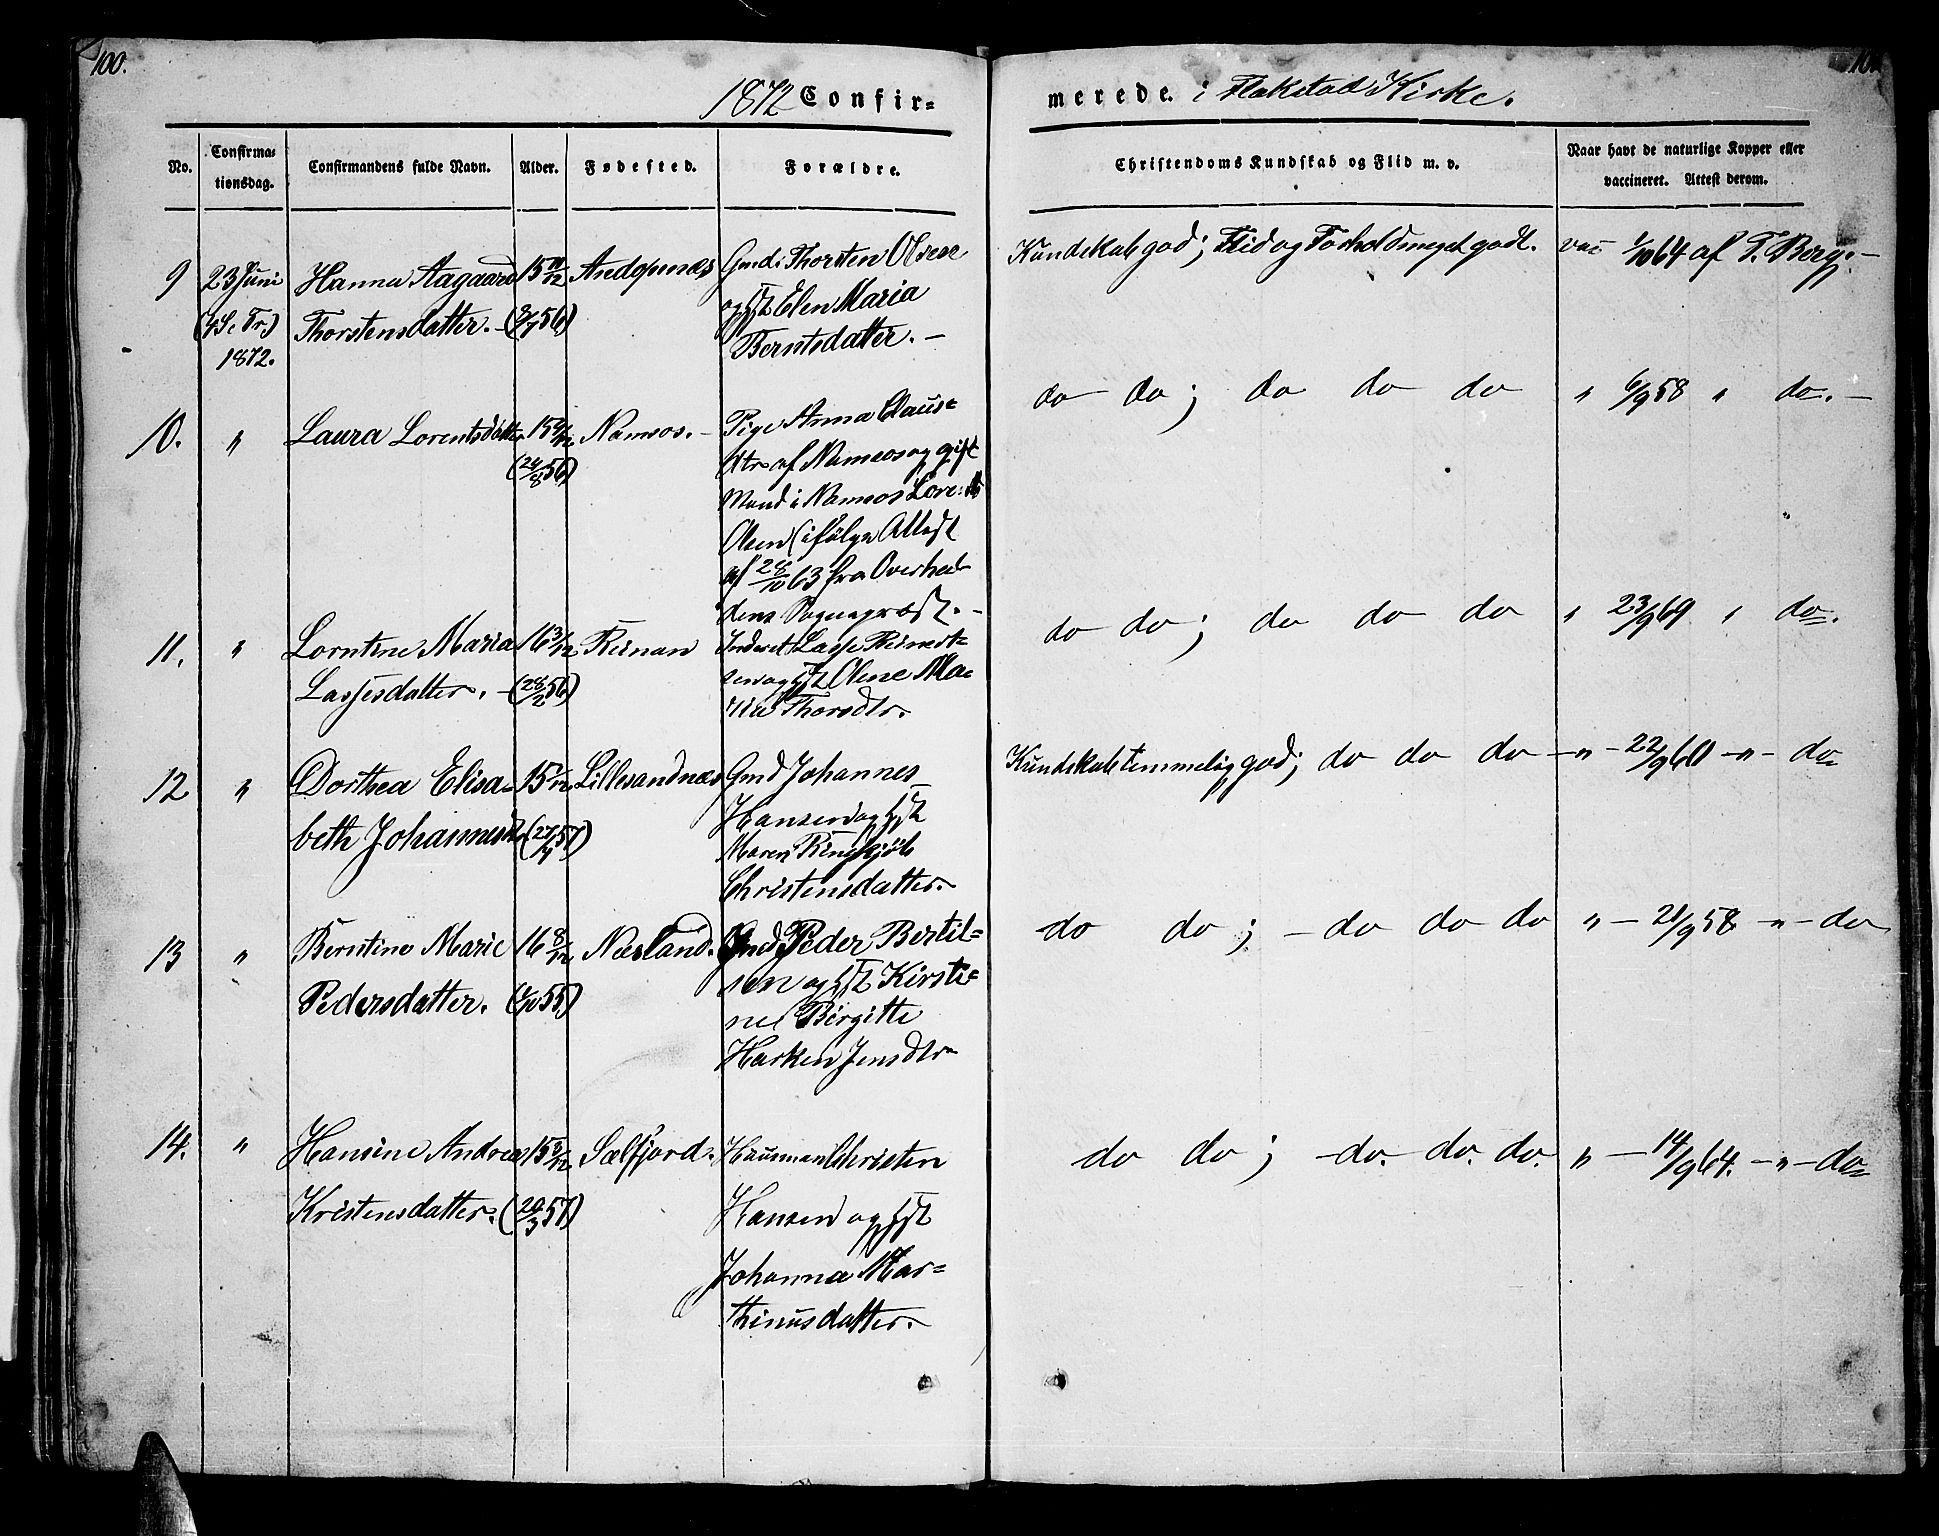 100.
1872 Confir-
merede. i Flakstad Kirke.
No.
Confirma-
tionsdag.
Confirmandens fulde Navn.
Alder.
Fødested.
Forældre.
Christendoms Kundskab og Flid m. v.
Naar havt de naturlige Kopper eller
vaccineret. Attest derom.
9
23 Juni
(4 S. e. Tr.)
1872.
Hanna Aagaard
Thorstensdatter. -
15 11/12
(8/7 56)
Andopnæs
Gmd: Thorsten Olsen
og Hst Elen Maria
Berntsdatter. -
Kundskab god; Flid og Forhold meget godt.
vac 1/10 64 af T. Berg. -
10.
"
Laura Lorentsdatter
(24/8 56)
Namsos. -
Pige Anna Claus-
dtr af Namsos og gift
Mand i Namsos Lorents
Olsen (ifølge Attest
af 28/10 63 fra Overhal-
dens Sognepræst. -
do do; do do do
" 6/9 58 " do. -
11.
"
Lorntine Maria
Lassesdatter. -
16 3/12
(28/2 56)
Reinan
Inderst Lasse
og Hst Olene Ma-
ria Thorsdtr.
do do; do do do
" 23/9 69 " do.
12
"
Dorthea Elisa-
beth Johannesd
15 2/12
(27/4 57)
Lillesandnæs
Gmd Johannes
Hansen og Hst
Maren Ringkjöb
Christensdatter.
Kundskab temmelig god; do do do
- " - 22/9 60 - " - do
13
"
Berntine Marie
Pedersdatter.
16 8/12
(1/10 55)
Næsland.
Gmd Peder Bertil-
sen og Hst Kirsti-
ne Birgitte
Harken Jensdtr
do do; - do do do
" - 21/9 58 - " - do
14.
"
Hansine Andrea
Kristensdatter.
15 3/12
(20/3 57)
Sælfjord.
Huusmand Christen
Hansen og Hst
Johanna Mar-
thinusdatter.
do do; - do. do. do.
" - 14/9 64. - " - do